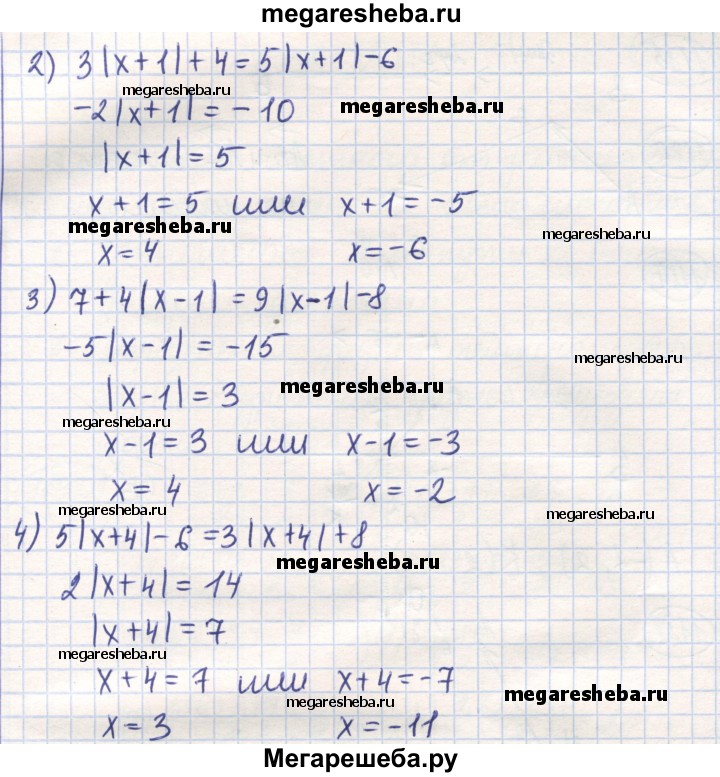 megaresheba.ru
2) 3|x+1|+4=5|x+1|-6
megaresheba.ru
-2|x+1|=-10 megaresheba.ru
|x+1|=5
x+1=5 или x+1=-5
megaresheba.ru megaresheba.ru
x=4 x=-6
3) 7+4|x-1|=9|x-1|-8
-5|x-1|=-15 megaresheba.ru
|x-1|=3 megaresheba.ru
megaresheba.ru
x-1=3 или x-1=-3
x=4 x=-2
megaresheba.ru megaresheba.ru
4) 5|x+4|-6=3|x+4|+8
megaresheba.ru
2|x+4|=14
|x+4|=7
megaresheba.ru
x+4=7 или x+4=-7
megaresheba.ru megaresheba.ru
x=3 x=-11
Мегарешеба.ру